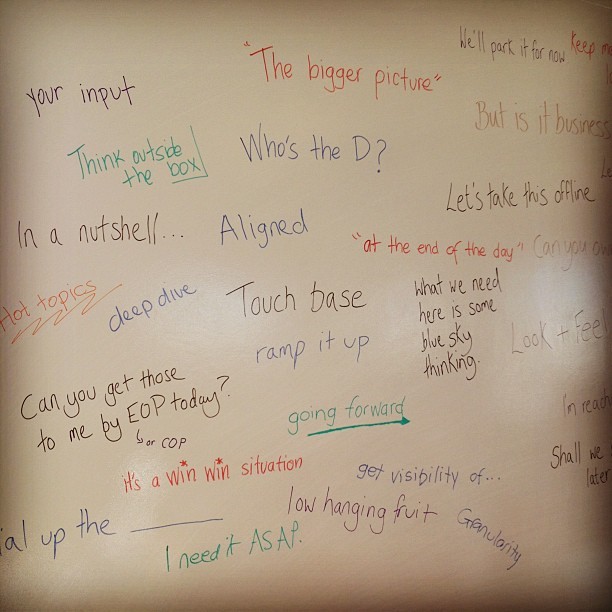 We'll park it for now
Keep
"The bigger picture"
your input
But is it business
Think outside
the box
Who's the D?
Let's take this offline
In a nutshell...
Aligned
"at the end of the day"
Can you
Hot topics
deep dive
Touch base
What we need
here is some
blue sky
thinking.
ramp it up
Look + Feel
Can you get those
to me by EOP today?
or COP
going forward
I'm reach
Shall we
later
It's a win win situation
get visibility of...
low hanging fruit
Granularity
ial up the ________
I need it ASAP.